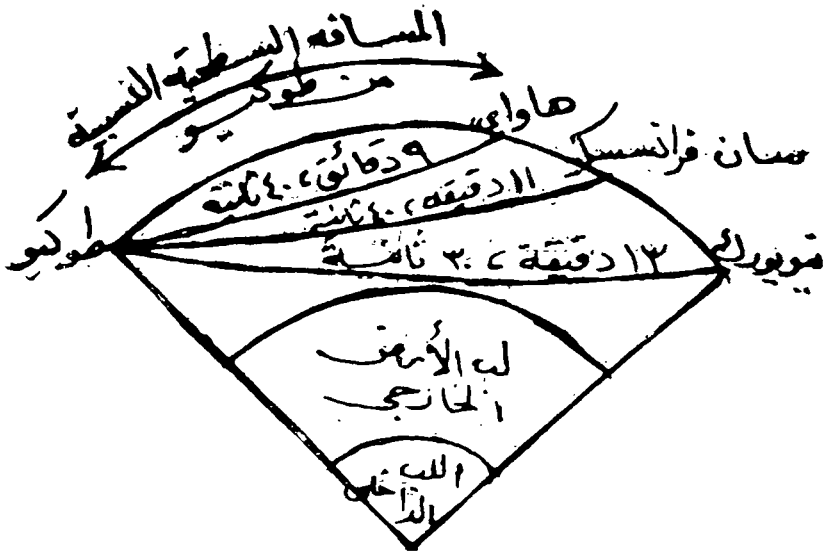 المسافه السطحية النسبية
من طوكيو
هاواي
سان فرانسسكو
٩ دقائق، ٤٠ ثانية
١١ دقيقه، ٤٠ ثانية
طوكيو
١٣ دقيقة، ٣٠ ثانية
نيويورك
لب الأرض
الخارجي
اللب
الداخلي